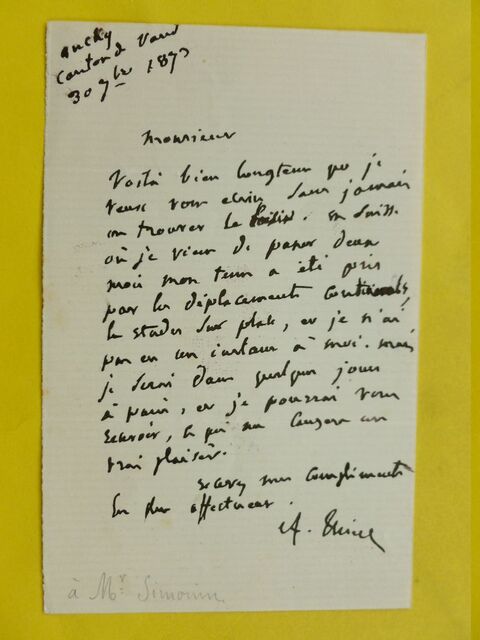 ouchy
canton de Vaud
30 7bre 1873
Monsieur
Voilà bien longtems que je
veux vous ecrire sans jamais
en trouver le loisir. en Suisse
où je viens de passer deux
mois mon tems a été pris
par les déplacements continuels,
les etudes sur place, et je n'ai
pas eu un instant à moi. mais
je serai dans quelques jours
à paris, et je pourrai vous
, ce qui me causera un
vrai plaisir.
mes compliments
les plus affectueux.
A.
à Mr Simonin